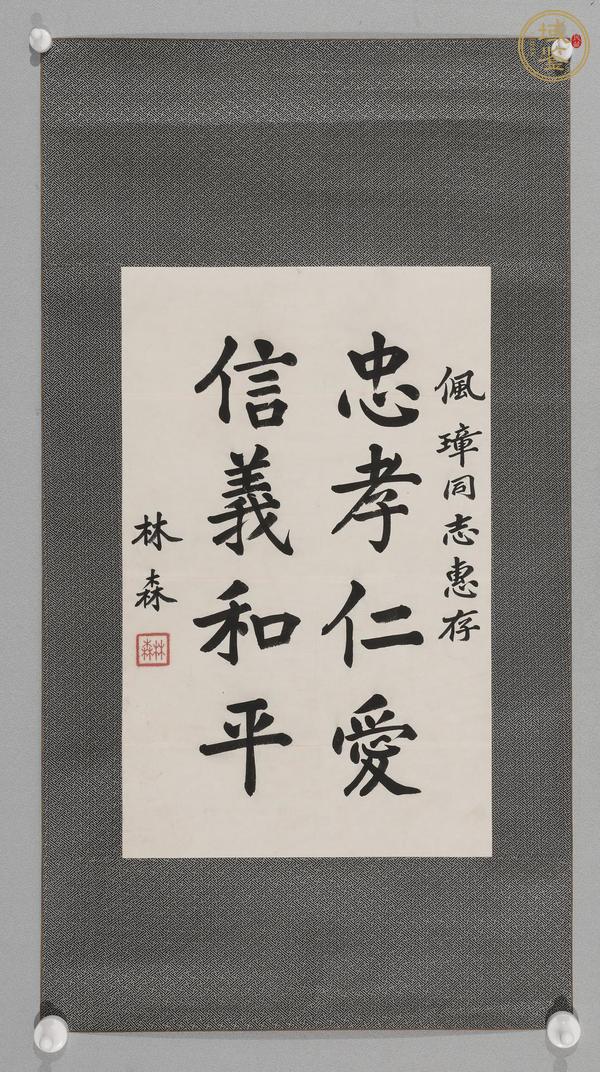 佩璋同志惠存
忠孝仁愛
信義和平
林森
林森
域鉴